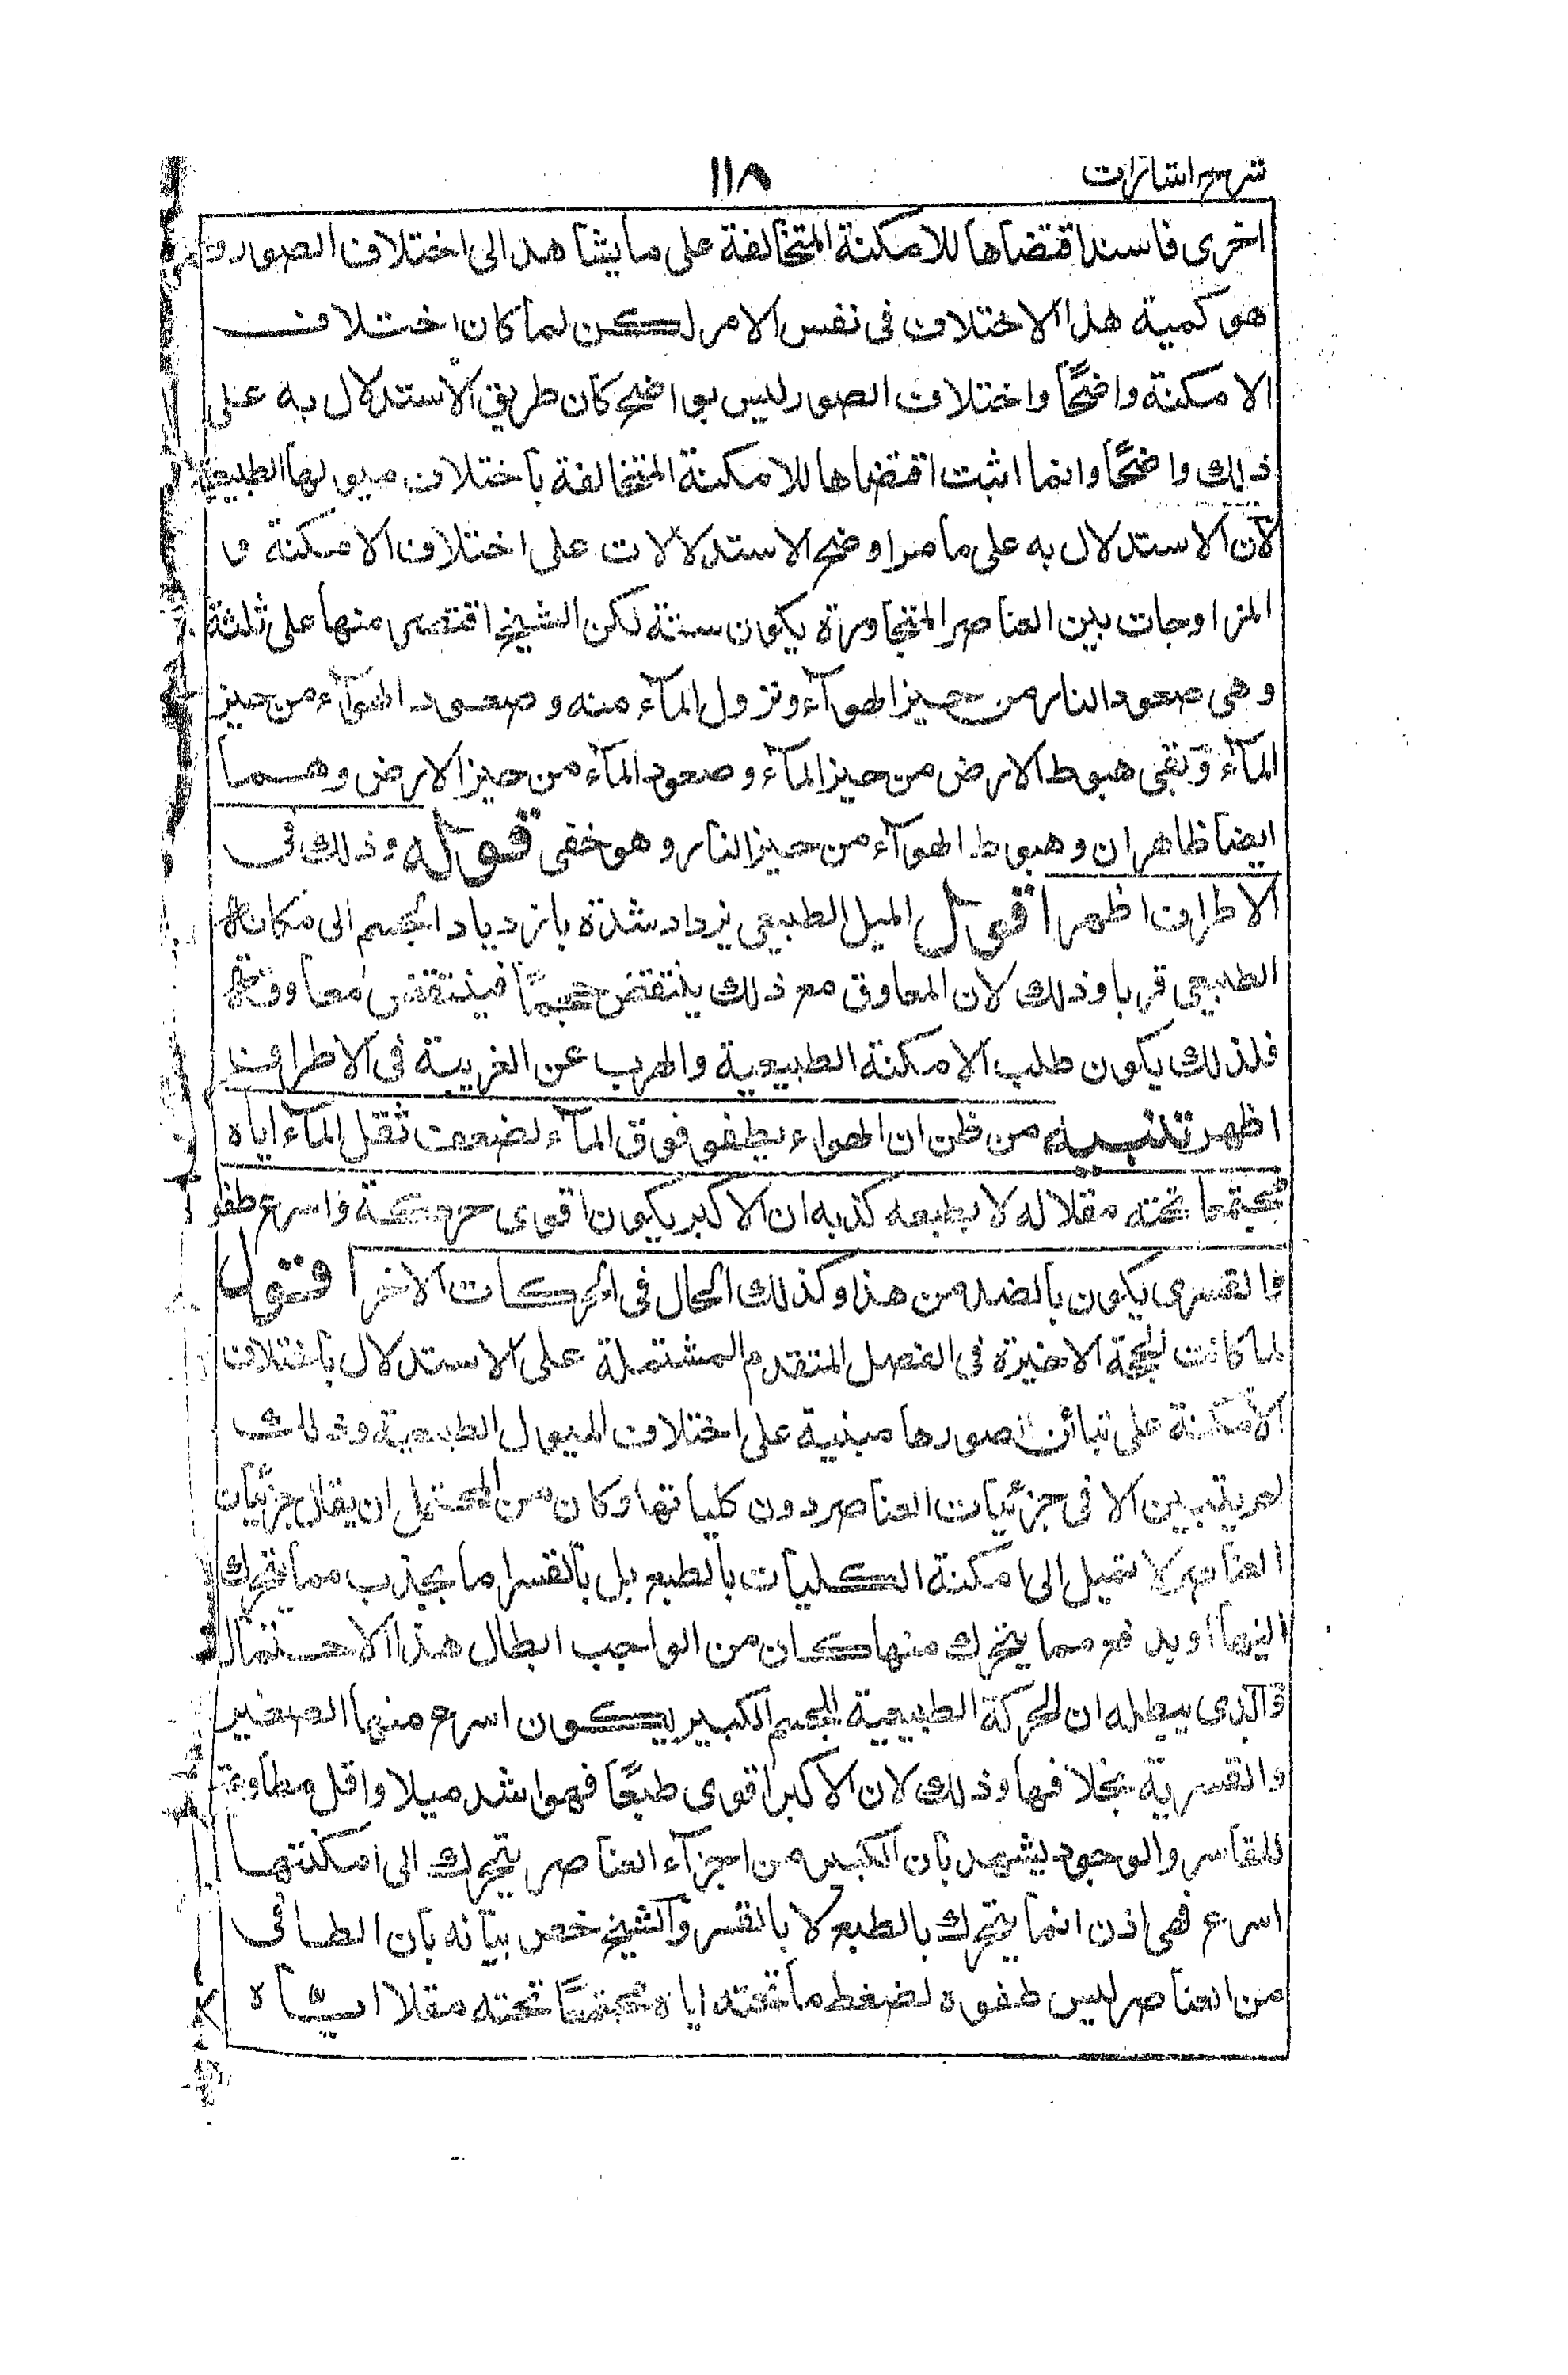 شرح اشارات ١١٨
اخرى فاسند اقتضاها للامكنة المتخالفة على ما يشاهد الى اختلاف الصور و
هو كمية هذا الاختلاف فى نفس الامر لكن لما كان اختلاف
الامكنة واضحًا واختلاف الصور ليس بواضح كان طريق الاستدلال به على
ذلك واضحًا وانما اثبت اقتضاها للامكنة المتخالفة باختلاف ميولها الطبيعية
لان الاستدلال به على ما مر اوضح الاستدلالات على اختلاف الامكنة و
المزاوجات بين العناصر المتجاورة يكون ستة لكن الشيخ اقتصر منها على ثلثة
وهى صعود النار من حيز الهوآء ونزول المآء منه وصعود الهوآء من حيز
المآء وبقى هبوط الارض من حيز المآء وصعود المآء من حيز الارض وهما
ايضا ظاهران وهبوط الهوآء من حيز النار وهو خفى قوله وذلك فى
الاطراف اظهر اقول الميل الطبيعى يزداد شدة بازدياد الجسم الى مكانه
الطبيعى قربا وذلك لان المعاوق مع ذلك ينتقض حجمًا فينتقص معاوقته
فلذلك يكون طلب الامكنة الطبيعية والهرب عن الغريبة فى الاطراف
اظهر تنبيه من ظن ان الهواء يطفو فوق المآء لضعف ثقل المآء اياه
مجتمعا تحته مقلا له لا بطبعه كذبه ان الاكبر يكون اقوى حركة واسرع طفو
فالقسرى يكون بالضد من هذا وكذلك الحال فى الحركات الاخر اقول
لما كانت الحجة الاخيرة فى الفصل المتقدم المشتملة على الاستدلال باختلاف
الامكنة على تبائن صورها مبنية على اختلاف الميول الطبيعية وذلك
لم يتبين الا فى جزئيات العناصر دون كلياتها وكان من المحتمل ان يقال جزئيات
العناصر لا تميل الى امكنة الكليات بالطبع بل بالقسر اما بجذب مما يتحرك
اليها او بدفع مما يتحرك منها كان من الواجب ابطال هذا الاحتمال
والذى يبطله ان الحركة الطبيعية للجسم الكبير يكون اسرع منها الصغير
والقسرية بخلافها وذلك لان الاكبر اقوى طبعًا فهو اشد ميلا واقل مطاوعة
للقاسر والوجود يشهد بان الكبير من اجزآء العناصر يتحرك الى امكنتها
اسرع فهى اذن انما يتحرك بالطبع لا بالقسر والشيخ خص بيانه بان الطافى
من العناصر ليس طفوه لضغط ما تحته اياه مجتمعًا تحته مقلا اياه